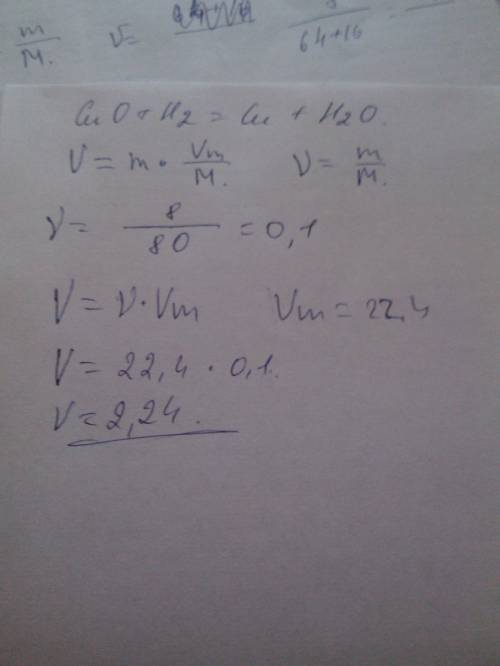 m/M. ν= 8/64+16
CuO + H2 = Cu + H2O.
V = m · Vm/M. ν = m/M.
ν = 8/80 = 0,1
V = ν · Vm Vm = 22,4
V = 22,4 · 0,1.
V = 2,24.